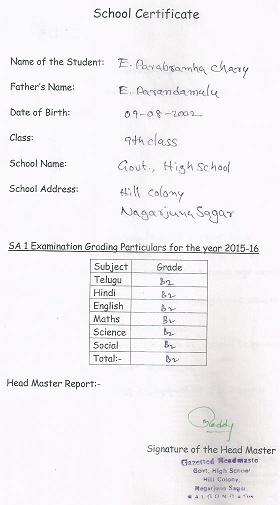 School Certificate
Name of the Student: E. Parabramha Chary
Father's Name: E. Parandamulu
Date of Birth: 09-08-2002
Class: 9th class
School Name: Govt., High School
School Address: Hill Colony
Nagarjuna Sagar
SA 1 Examination Grading Particulars for the year 2015-16
Subject Grade
Telugu B2
Hindi B2
English B2
Maths B2
Science B2
Social B2
Total:- B2
Head Master Report:-
Reddy
Signature of the Head Master
Gazetted Headmaste
Govt. High School
Hill Colony,
Nagarjuna Sagar.